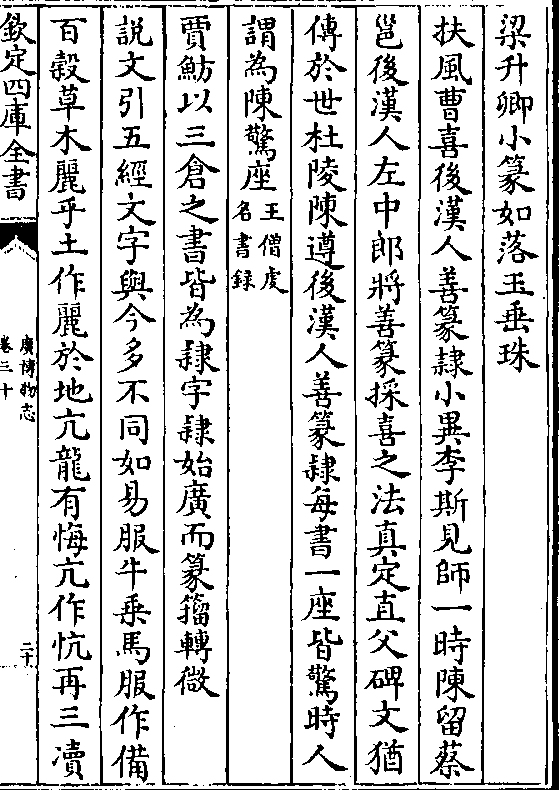 梁升卿小篆如落玉垂珠
扶風曹喜後漢人善篆隸小異李斯見師一時陳留蔡
邕後漢人左中郎將善篆採喜之法真定直父碑文猶
傳於世杜陵陳遵後漢人善篆隸每書一座皆驚時人
謂為陳驚座王僧虔
名書録
賈魴以三倉之書皆為隸字隸始廣而篆籀轉微
説文引五經文字與今多不同如易服牛乗馬服作備
百榖草木麗乎土作麗於地亢龍有悔亢作忼再三瀆
欽定四庫全書
廣博物志
卷三十
二十